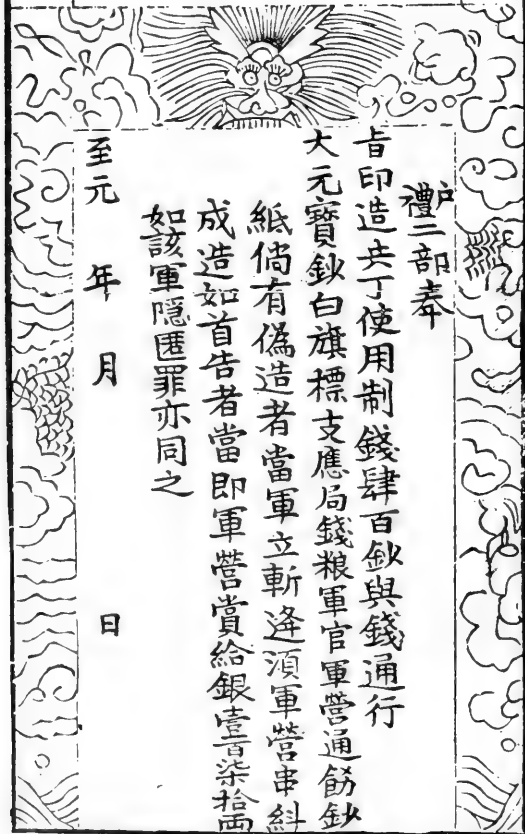 户禮二部奉
旨印造兵丁使用制錢肆百鈔與錢通行
大元寶鈔白旗標支應局錢粮軍官軍營通餉鈔
紙倘有偽造者當軍立斬逢須軍營串糾
成造如首告者當即軍營賞給銀壹百柒拾両
如該軍隐匿罪亦同之
至元 年 月 日